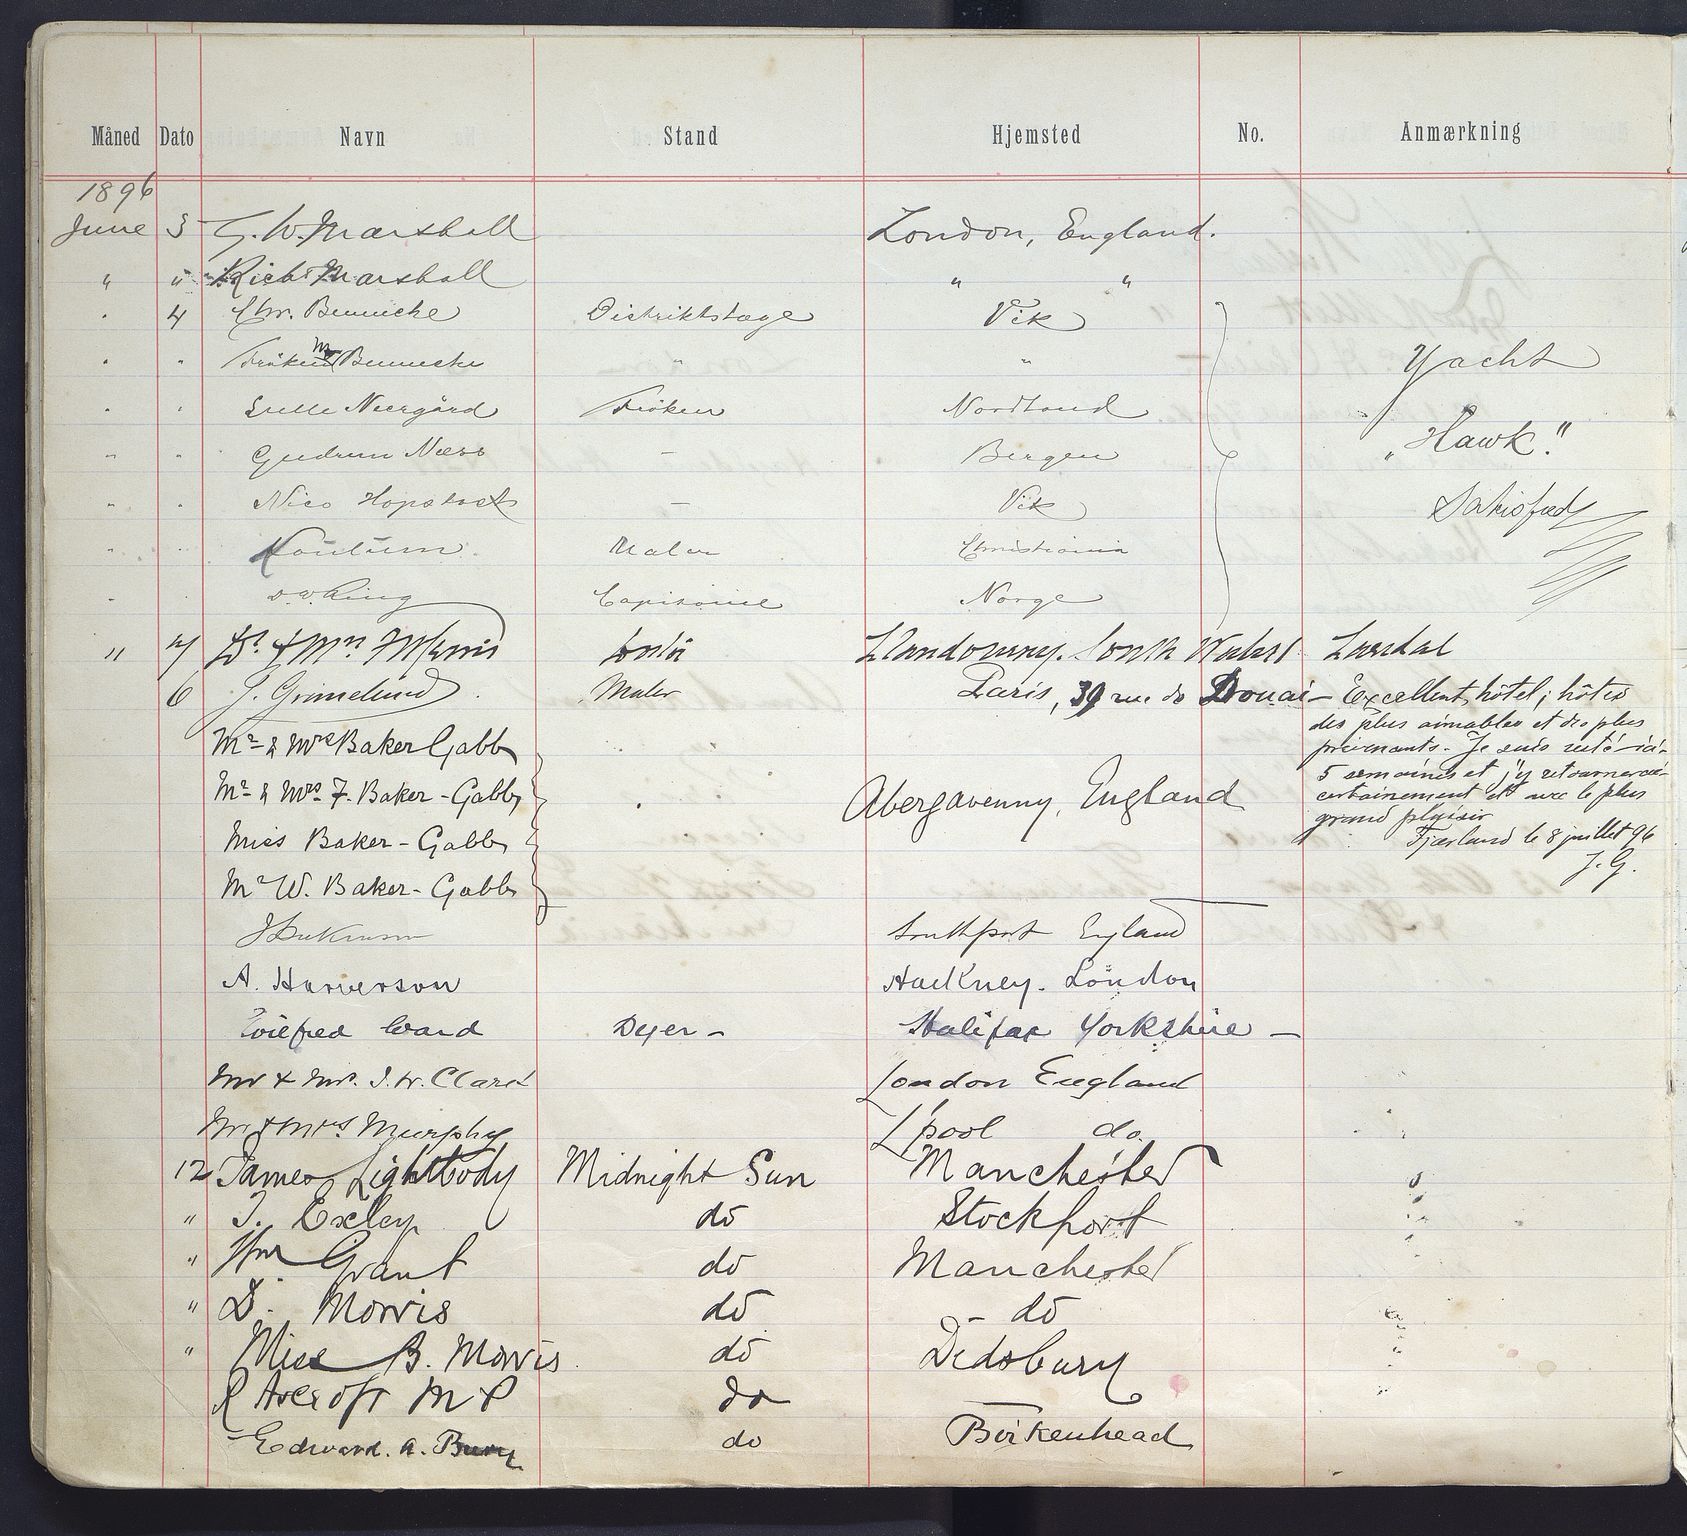 Måned Dato Navn Stand Hjemsted No. Anmærkning
1896
June 3 G. W. Marshall London, England.
" " Richd Marshall " "
" 4 Chr. Benneche Distriktslæge Vik
" " Frøken M Benneche " " Yacht
" " Neergård Frøken Nordland
" " Gudrun Næss — Bergen „Hawk."
" " Nico Hopstock — Vik Satisfied
" " Maler Christiania
" " Norge
" 4 Dr. & Mrs Llandovery. South Wales Laerdal
6 J. Grimelund Maler Paris, 39 rue de Douai — Excellent hôtel; hôtes
des plus aimables et des plus
prévenants. Je suis resté ici
5 semaines et j'y retournerai
certainement et avec le plus
grand plaisir
Fjærland le 8 juillet 96
J. G.
Mr & Mrs Baker Gabb
Mr & Mrs F. Baker-Gabb Abergavenny, England
Miss Baker-Gabb
Mr W. Baker-Gabb
Southport England
A. Harverson Hackney. London
Wilfred Ward Dyer — Halifax Yorkshire —
Mr & Mrs. J. W. Clark London England
Mr & Mrs. Murphy L'pool do.
12 James Lightbody Midnight Sun Manchester
" J. Exley do Stockport
" Wm Grant do Manchester
" D. Morris do do
" Miss B. Morris do Didsbury
R Ascroft M P do
Edward. A. Bury do Birkenhead